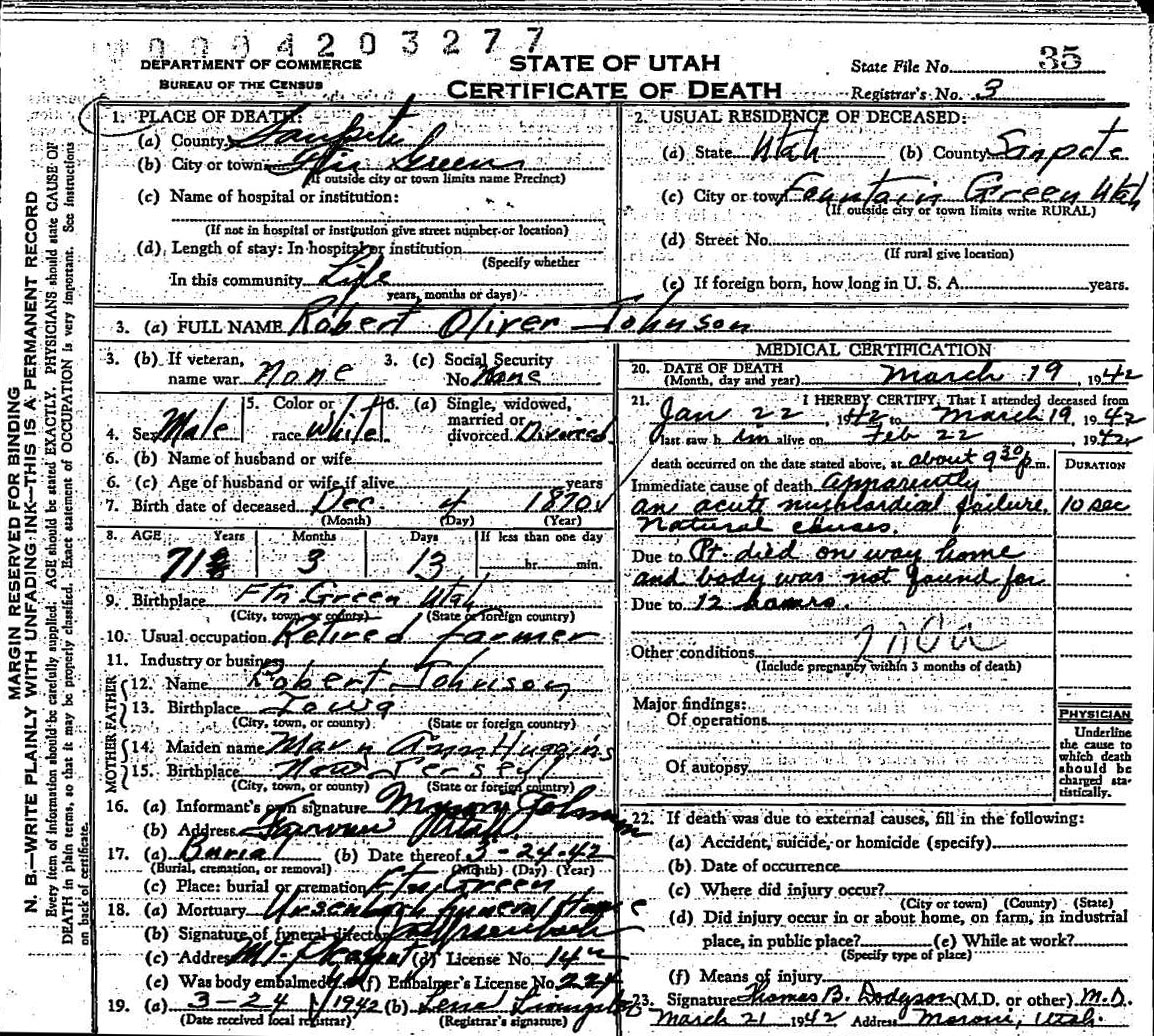 0 0 0 4 2 0 3 2 7 7
DEPARTMENT OF COMMERCE
BUREAU OF THE CENSUS
STATE OF UTAH
CERTIFICATE OF DEATH
State File No. 35
Registrar's No. 3
MARGIN RESERVED FOR BINDING
N. B.—WRITE PLAINLY WITH UNFADING INK—THIS IS A PERMANENT RECORD
Every item of information should be carefully supplied. AGE should be stated EXACTLY. PHYSICIANS should state CAUSE OF
DEATH in plain terms, so that it may be properly classified. Exact statement of OCCUPATION is very important. See instructions
on back of certificate.
1. PLACE OF DEATH:
(a) County Sanpete
(b) City or town Green
(If outside city or town limits name Precinct)
(c) Name of hospital or institution:
(If not in hospital or institution give street number or location)
(d) Length of stay: In hospital or institution
(Specify whether
In this community Life
years, months or days)
2. USUAL RESIDENCE OF DECEASED:
(a) State Utah (b) County Sanpete
(c) City or town Fountain Green Utah
(If outside city or town limits write RURAL)
(d) Street No.
(If rural give location)
(e) If foreign born, how long in U. S. A. years.
3. (a) FULL NAME Robert Oliver Johnson
3. (b) If veteran, name war None
3. (c) Social Security No. None
4. Sex Male
5. Color or race White
6. (a) Single, widowed, married or divorced Divorced
6. (b) Name of husband or wife
6. (c) Age of husband or wife if alive years
7. Birth date of deceased Dec. 4 1870
(Month) (Day) (Year)
8. AGE Years Months Days If less than one day
71 3 13 hr. min.
9. Birthplace Ftn Green Utah
(City, town, or county) (State or foreign country)
10. Usual occupation Retired farmer
11. Industry or business
FATHER
12. Name Robert Johnson
13. Birthplace Iowa
(City, town, or county) (State or foreign country)
MOTHER
14. Maiden name Mary Ann Huggins
15. Birthplace New Jersey
(City, town, or county) (State or foreign country)
16. (a) Informant's own signature Myron Johnson
(b) Address Utah
17. (a) Burial (b) Date thereof 3-24-42
(Burial, cremation, or removal) (Month) (Day) (Year)
(c) Place: burial or cremation Ftn Green
18. (a) Mortuary Ursenbach Funeral Home
(b) Signature of funeral director Ursenbach
(c) Address Mt. Pleasant (d) License No. 142
(e) Was body embalmed (f) Embalmer's License No. 224
19. (a) 3-24 1942 (b) Lena
(Date received local registrar) (Registrar's signature)
MEDICAL CERTIFICATION
20. DATE OF DEATH
(Month, day and year) March 19, 1942
21. I HEREBY CERTIFY, That I attended deceased from
Jan 22, 1942 to March 19, 1942
last saw him alive on Feb 22 1942
death occurred on the date stated above, at about 9 30 p.m.
DURATION
Immediate cause of death Apparently
an acute myocardial failure. 10 sec
Natural causes.
Due to Pt. died on way home
and body was not found for
Due to 12 hours.
Other conditions
(Include pregnancy within 3 months of death)
Major findings:
Of operations
Of autopsy
PHYSICIAN
Underline
the cause to
which death
should be
charged sta-
tistically.
22. If death was due to external causes, fill in the following:
(a) Accident, suicide, or homicide (specify)
(b) Date of occurrence
(c) Where did injury occur?
(City or town) (County) (State)
(d) Did injury occur in or about home, on farm, in industrial
place, in public place? (e) While at work?
(Specify type of place)
(f) Means of injury
23. Signature Thomas B. Dodgson (M.D. or other) M.D.
March 21 1942 Address Moroni, Utah.